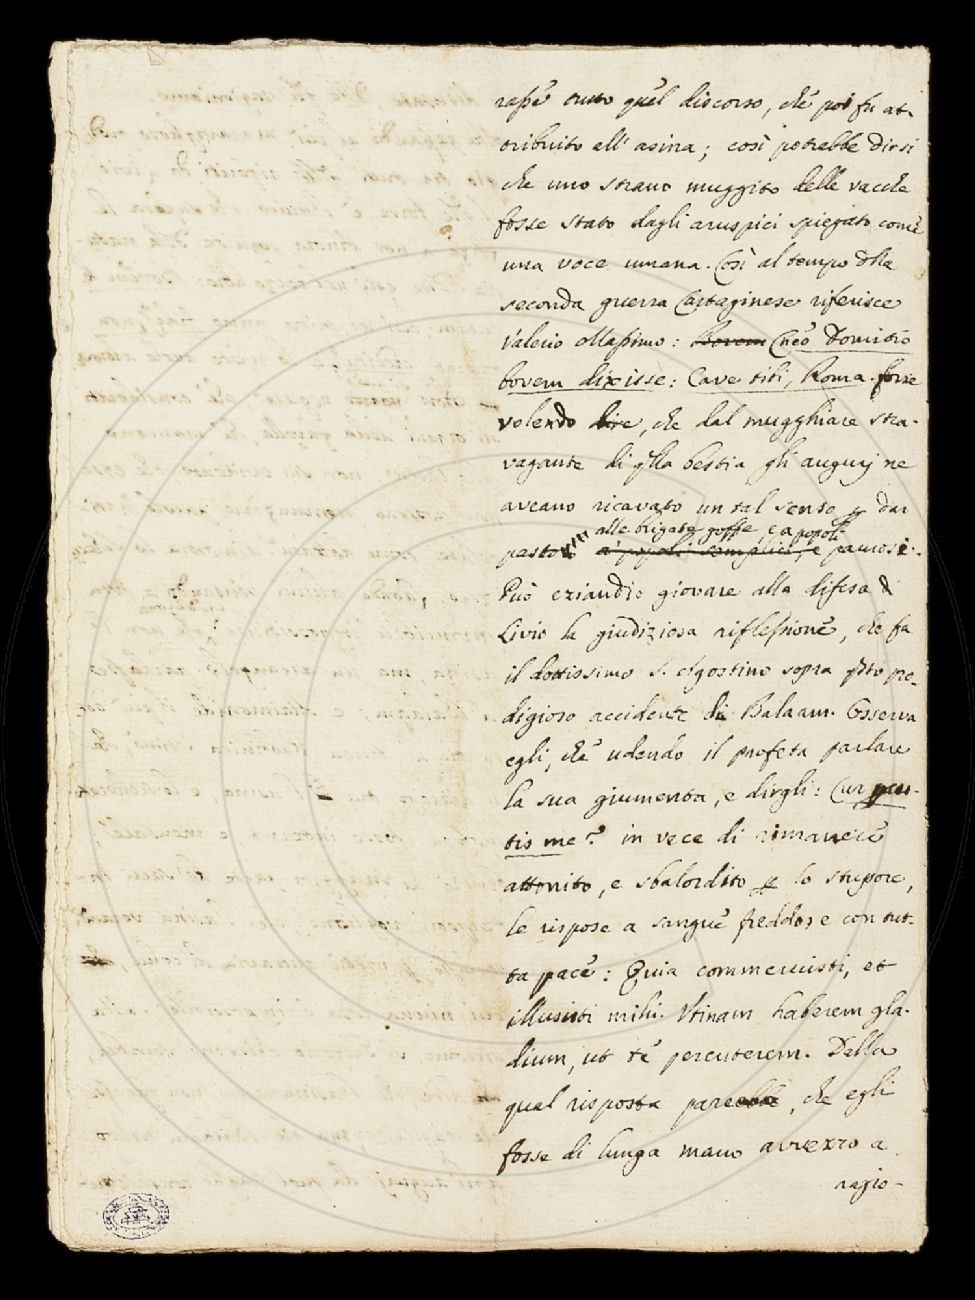 rasse tutto quel discorso, che poi fu at-
tribuito all' asina; così potrebbe dirsi
che uno strano muggito delle vacche
fosse stato dagli aruspici spiegato come
una voce umana. Così al tempo dlla
seconda guerra Cartaginese riferisce
Valerio Massimo: Bovem Cneo Domitio
bovem dixisse: Cave tibi, Roma. forse
volendo dire, che dal mugghiare stra-
vagante di qlla bestia gli augurj ne
aveano ricavato un tal senso p dar
alle brigate goffe, e a popoli
pasto a' popoli semplici, e paurosi.
Può eziandio giovare alla difesa di
Livio la giudiziosa riflessione, che fa
il dottissimo S. Agostino sopra qsto pro-
digioso accidente di Balaam. Osserva
egli, che udendo il profeta parlare
la sua giumenta, e dirgli: Cur percu-
tis me? in vece di rimanere
attonito, e sbalordito p lo stupore,
le rispose a sangue freddo, e con tut-
ta pace: Quia commeruisti, et
illusisti mihi. Utinam haberem gla-
dium, ut te percuterem. Dalla
qual risposta pare, che egli
fosse di lunga mano avvezzo a
ragio-